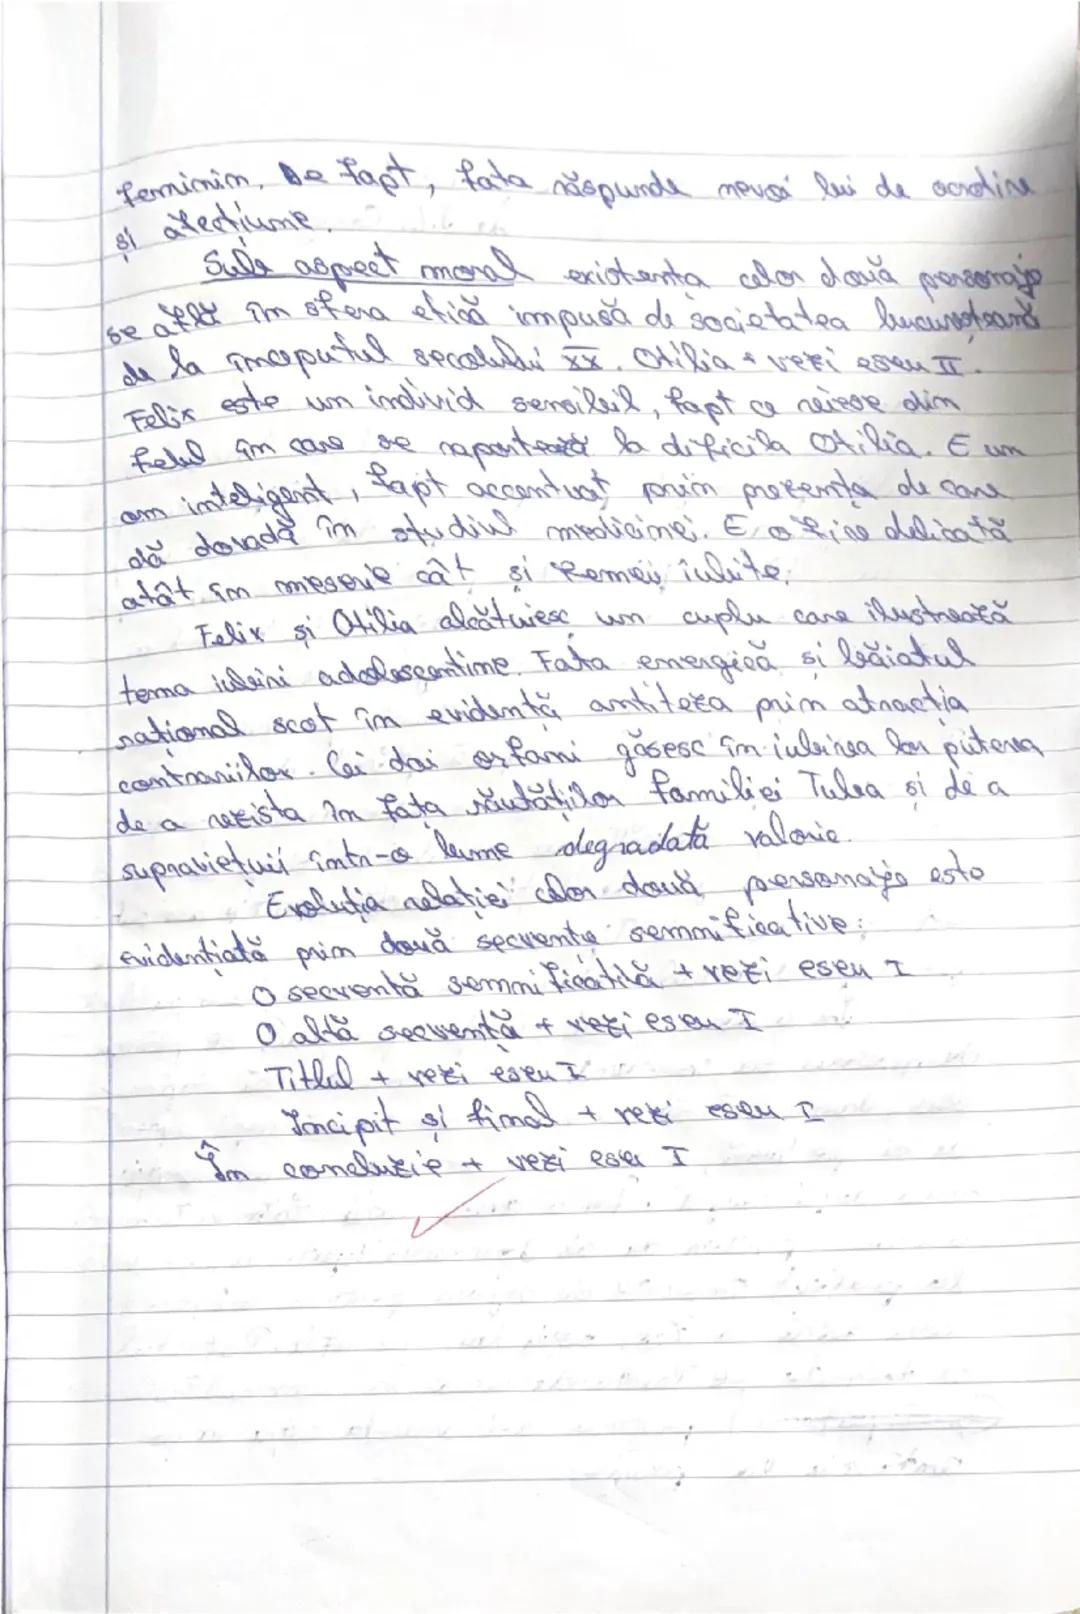 feminin. De fapt, fata răspunde nevoi lui de ocrotire
și afecțiune.
Sub aspect moral existența celor două personaje
se află în sfera etică impusă de societatea bucureșteană
de la începutul secolului XX. Otilia + vezi eseu II.
Felix este un individ sensibil, fapt ce reiese din
felul în care se raportează la dificila Otilia. E un
om inteligent, fapt accentuat prin prezența de care
dă dovadă în studiul medicinei. E o fire delicată
atât în meserie cât și femeii iubite.
Felix și Otilia alcătuiesc un cuplu care ilustrează
tema iubirii adolescentine. Fata energică și băiatul
rațional scot în evidență antiteza prin atracția
contrariilor. Cei doi orfani găsesc în iubirea lor puterea
de a rezista în fața răutăților familiei Tulea și de a
supraviețuii într-o lume degradată valoric.
Evoluția relației celor două personaje este
evidențiată prin două secvențe semnificative:
O secvență semnificativă + vezi eseu I
O altă secvență + vezi eseu I
Titlul + vezi eseu I
Incipit și final + vezi eseu I
În concluzie + vezi eseu I